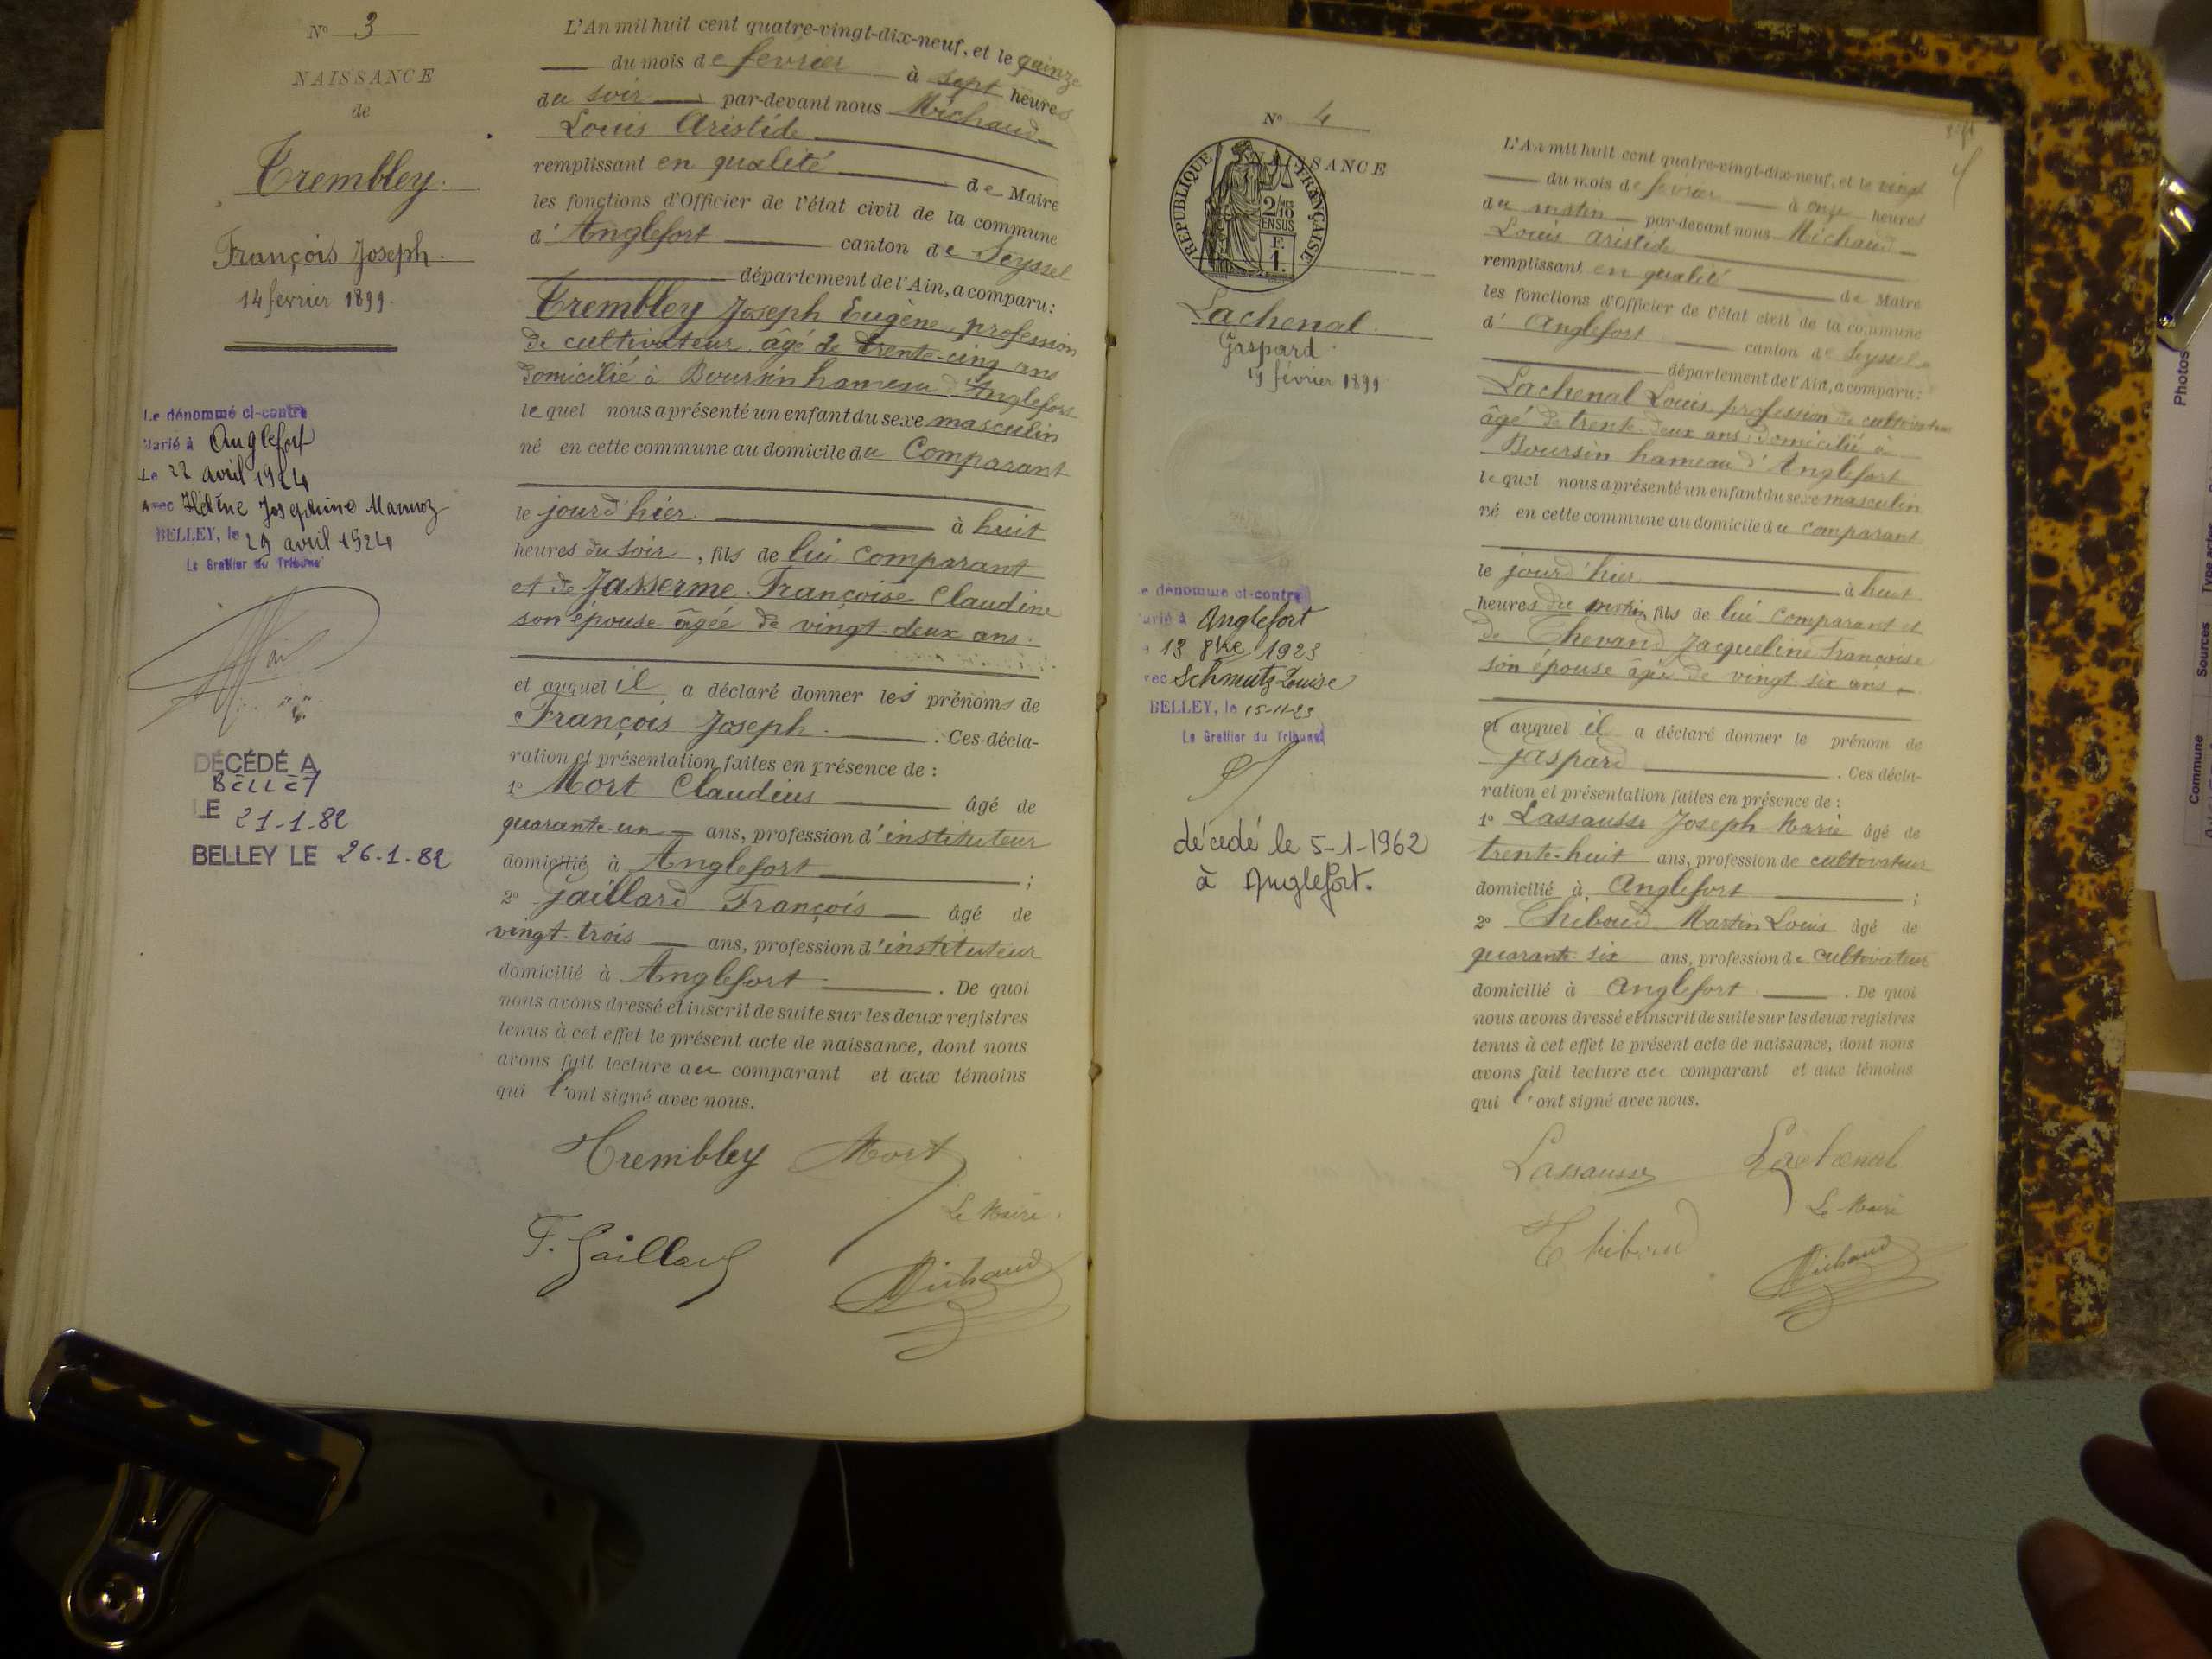 N° 3
NAISSANCE
de
Trembley.
François Joseph.
14 fevrier 1899.
Le dénommé ci-contre
Marié à Anglefort
Le 22 avril 1924
Avec Hélène Josephine
BELLEY, le 29 avril 1924
Le Greffier du Tribunal
DÉCÉDÉ A
BELLEY
LE 21-1-82
BELLEY LE 26.1.82
L'An mil huit cent quatre-vingt-dix-neuf, et le quinze
du mois de fevrier à sept heures
du soir par-devant nous Michaud
Louis Aristide
remplissant en qualité de Maire
les fonctions d'Officier de l'état civil de la commune
d'Anglefort canton de Seyssel
département de l'Ain, a comparu:
Trembley Joseph Eugène, profession
de cultivateur âgé de trente-cinq ans
domicilié à Boursin hameau d'Anglefort
lequel nous a présenté un enfant du sexe masculin
né en cette commune au domicile du Comparant
le jourd'hier à huit
heures du soir, fils de lui comparant
et de Jasserme Françoise Claudine
son épouse âgée de vingt-deux ans.
et auquel il a déclaré donner les prénoms de
François Joseph. Ces décla-
ration et présentation faites en présence de :
1° Mort Claudius âgé de
quarante-un ans, profession d'instituteur
domicilié à Anglefort ;
2° Gaillard François âgé de
vingt-trois ans, profession d'instituteur
domicilié à Anglefort. De quoi
nous avons dressé et inscrit de suite sur les deux registres
tenus à cet effet le présent acte de naissance, dont nous
avons fait lecture au comparant et aux témoins
qui l'ont signé avec nous.
Trembley Mort
Le Maire.
F. Gaillard
Michaud
N° 4
NAISSANCE
RÉPUBLIQUE FRANÇAISE
2/10
EN SUS
F.
1.
Lachenal
Gaspard
19 février 1899
le dénommé ci-contre
marié à Anglefort
13 1923
avec Schmutz Louise
BELLEY, le 15-11-23
Le Greffier du Tribunal
décédé le 5-1-1962
à Anglefort.
4
L'An mil huit cent quatre-vingt-dix-neuf, et le vingt
du mois de fevrier à onze heures
du matin par-devant nous Michaud
Louis Aristide
remplissant en qualité de Maire
les fonctions d'Officier de l'état civil de la commune
d'Anglefort canton de Seyssel
département de l'Ain, a comparu:
Lachenal Louis, profession de cultivateur
âgé de trente-deux ans domicilié à
Boursin hameau d'Anglefort
lequel nous a présenté un enfant du sexe masculin
né en cette commune au domicile du comparant
le jourd'hier à huit
heures du matin, fils de lui comparant et
de Chevand Jacqueline Françoise
son épouse âgée de vingt six ans
et auquel il a déclaré donner le prénom de
Gaspard. Ces décla-
ration et présentation faites en présence de :
1° Lassausse Joseph Marie âgé de
trente-huit ans, profession de cultivateur
domicilié à Anglefort ;
2° Thiboud Martin Louis âgé de
quarante-six ans, profession de cultivateur
domicilié à Anglefort. De quoi
nous avons dressé et inscrit de suite sur les deux registres
tenus à cet effet le présent acte de naissance, dont nous
avons fait lecture au comparant et aux témoins
qui l'ont signé avec nous.
Lassausse Lachenal
Le Maire
Thiboud
Michaud
Photos
Commune Sources